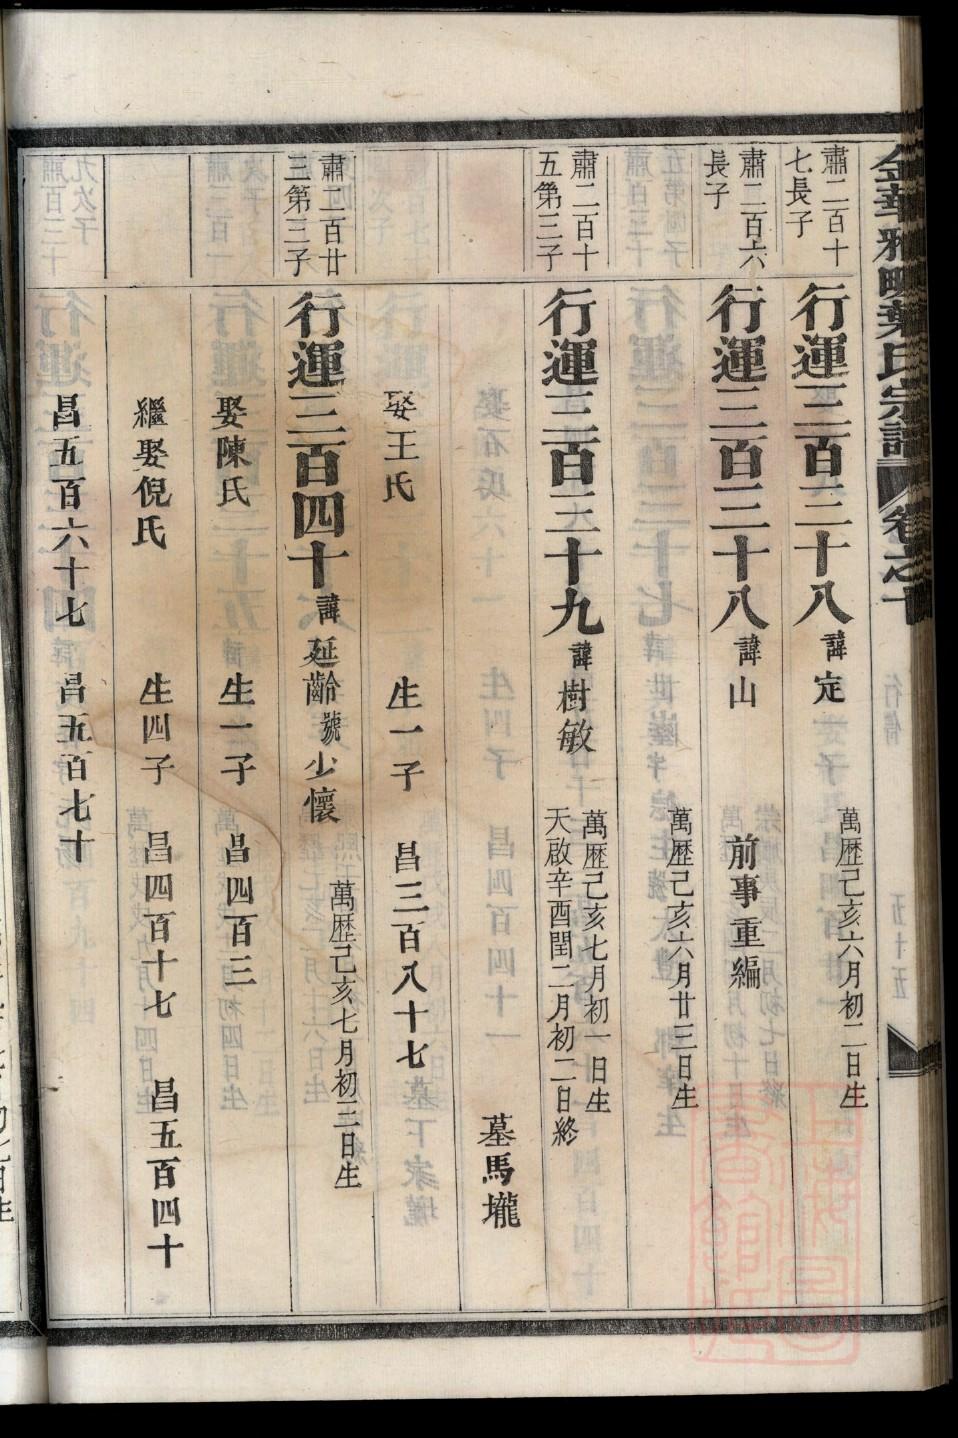 金華雅畈葉氏宗譜 卷之十
肅二百十
七長子
行運三百三十八 諱定 萬歷己亥六月初二日生
肅二百六
長子
行運三百三十八 諱山 前事重編
萬歷己亥六月廿三日生
肅二百十
五第三子
行運三百三十九 諱樹敏 萬歷己亥七月初一日生
天啟辛酉閏二月初二日終
墓馬壠
娶王氏 生一子 昌三百八十七
肅二百廿
三第三子
行運三百四十 諱延齡號少懷 萬歷己亥七月初三日生
娶陳氏 生一子 昌四百三
繼娶倪氏 生四子 昌四百十七 昌五百四十
昌五百六十七 昌五百七十